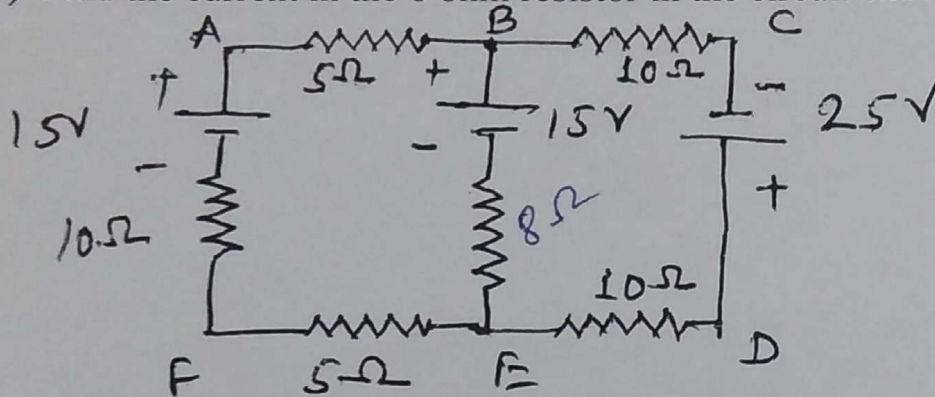 A B C
5Ω + 10Ω
+ - 
15V 15V 25V
- - +
10Ω 8Ω
10Ω
F 5Ω E D